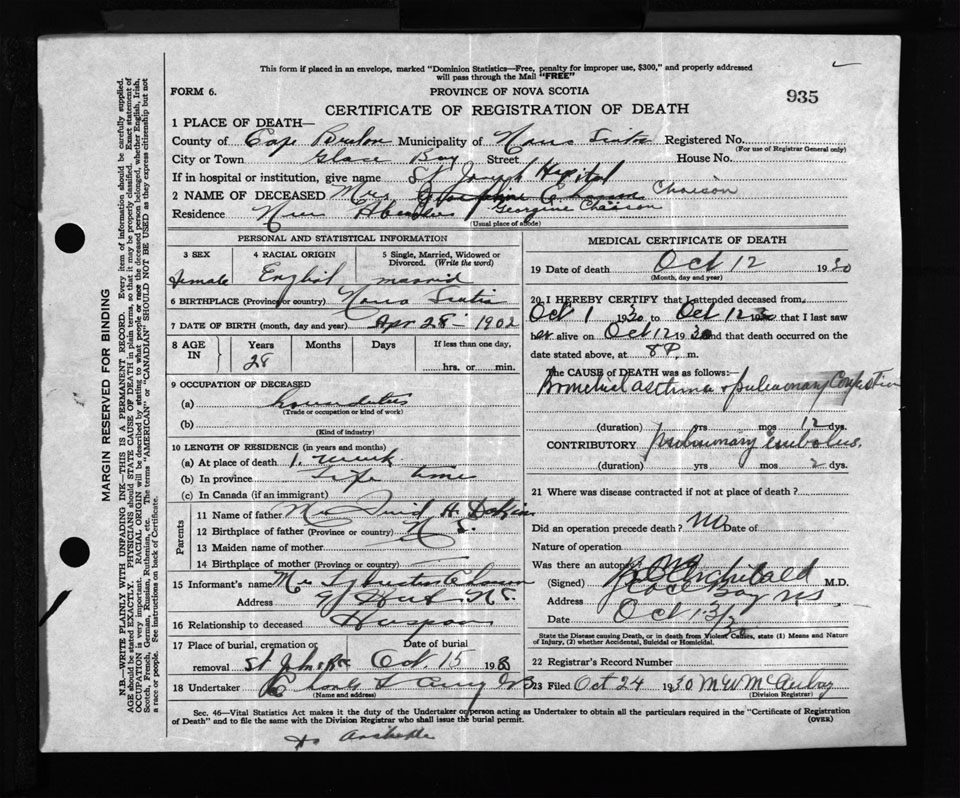 This form if placed in an envelope, marked "Dominion Statistics—Free, penalty for improper use, $300," and properly addressed
will pass through the Mail "FREE"
FORM 6.
PROVINCE OF NOVA SCOTIA
935
CERTIFICATE OF REGISTRATION OF DEATH
1 PLACE OF DEATH—
County of Cape Breton Municipality of Nova Scotia Registered No.
(For use of Registrar General only)
City or Town Glace Bay Street House No.
If in hospital or institution, give name St Joseph Hospital
2 NAME OF DECEASED Mrs Chaison
Georgine Chaison
Residence New Aberdeen
(Usual place of abode)
PERSONAL AND STATISTICAL INFORMATION
3 SEX
4 RACIAL ORIGIN
5 Single, Married, Widowed or Divorced. (Write the word)
Female English married
6 BIRTHPLACE (Province or country) Nova Scotia
7 DATE OF BIRTH (month, day and year) Apr 28 - 1902
8 AGE IN
Years Months Days If less than one day,
28
hrs. or min.
9 OCCUPATION OF DECEASED
(a)
(Trade or occupation or kind of work)
(b)
(Kind of industry)
10 LENGTH OF RESIDENCE (in years and months)
(a) At place of death 1 week
(b) In province Life time
(c) In Canada (if an immigrant)
Parents
11 Name of father H.
12 Birthplace of father (Province or country) N S.
13 Maiden name of mother
14 Birthplace of mother (Province or country)
15 Informant's name Mr
Address
16 Relationship to deceased
17 Place of burial, cremation or removal Date of burial
Oct. 15 193
18 Undertaker
(Name and address)
MEDICAL CERTIFICATE OF DEATH
19 Date of death Oct 12 1930
(Month, day and year)
20 I HEREBY CERTIFY that I attended deceased from
Oct 1 1930 to Oct 12 that I last saw
her alive on Oct 12 1930 and that death occurred on the
date stated above, at 8 P. m.
The CAUSE of DEATH was as follows:—
Bronchial asthma & pulmonary Congestion
(duration) yrs mos 12 dys.
CONTRIBUTORY pulmonary embolus.
(duration) yrs mos 2 dys.
21 Where was disease contracted if not at place of death?
Did an operation precede death? no Date of
Nature of operation
Was there an autopsy? no
(Signed) Archibald M.D.
Address Glace Bay N.S.
Date Oct 13/30
State the Disease causing Death, or in death from Violent Causes, state (1) Means and Nature of Injury, (2) whether Accidental, Suicidal or Homicidal.
22 Registrar's Record Number
23 Filed Oct 24 1930
(Division Registrar)
Sec. 46—Vital Statistics Act makes it the duty of the Undertaker or person acting as Undertaker to obtain all the particulars required in the "Certificate of Registration
of Death" and to file the same with the Division Registrar who shall issue the burial permit.
(OVER)
MARGIN RESERVED FOR BINDING
N.B.—WRITE PLAINLY WITH UNFADING INK—THIS IS A PERMANENT RECORD. Every item of information should be carefully supplied.
AGE should be stated EXACTLY. PHYSICIANS should STATE CAUSE OF DEATH in plain terms, so that it may be properly classified. Exact statement of
OCCUPATION is very important. RACIAL ORIGIN will be described by stating to what people or race the deceased person belonged, whether English, Irish,
Scotch, French, German, Russian, Ruthenian, etc. The terms "AMERICAN" or "CANADIAN" SHOULD NOT BE USED as they express citizenship but not
a race or people. See instructions on back of Certificate.